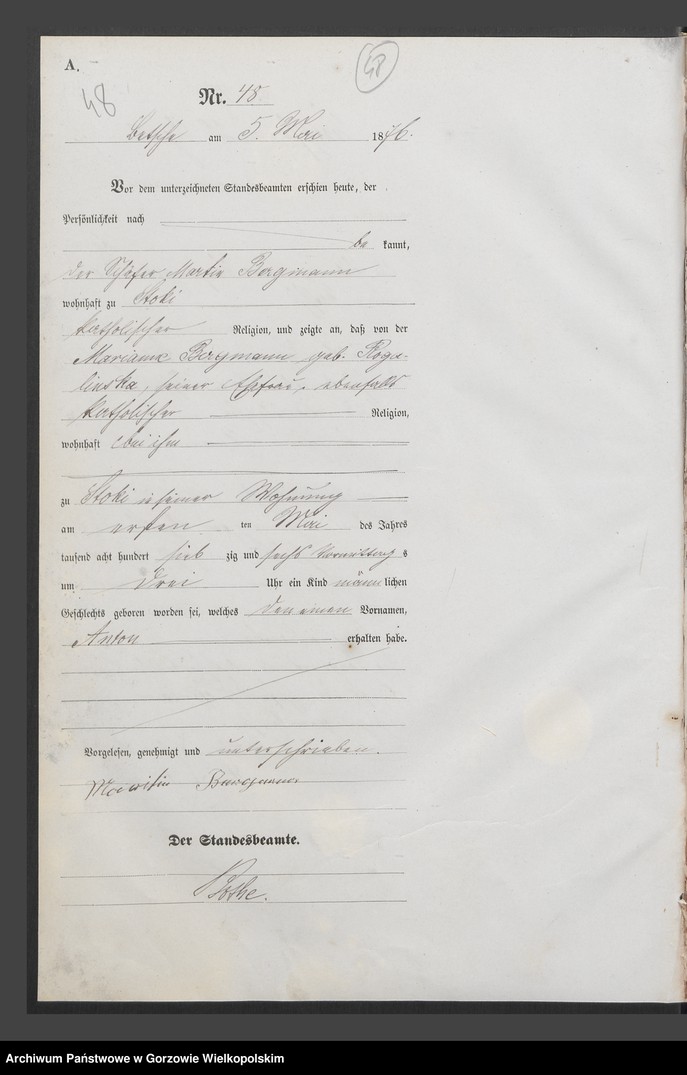 A.
48
48
Nr. 48
Betsche am 5. Mai 1876.
Vor dem unterzeichneten Standesbeamten erschien heute, der
Persönlichkeit nach
be kannt,
der Schäfer Martin Bergmann
wohnhaft zu Stoki
katholischer Religion, und zeigte an, daß von der
Marianne Bergmann geb. Roga-
linska, seiner Ehefrau, ebenfalls
katholischer Religion,
wohnhaft bei ihm
zu Stoki in seiner Wohnung
am ersten ten Mai des Jahres
tausend acht hundert sieb zig und sechs Vormittags
um drei Uhr ein Kind männlichen
Geschlechts geboren worden sei, welches den einen Vornamen,
Anton erhalten habe.
Vorgelesen, genehmigt und unterschrieben.
Martin Bergmann
Der Standesbeamte.
Archiwum Państwowe w Gorzowie Wielkopolskim